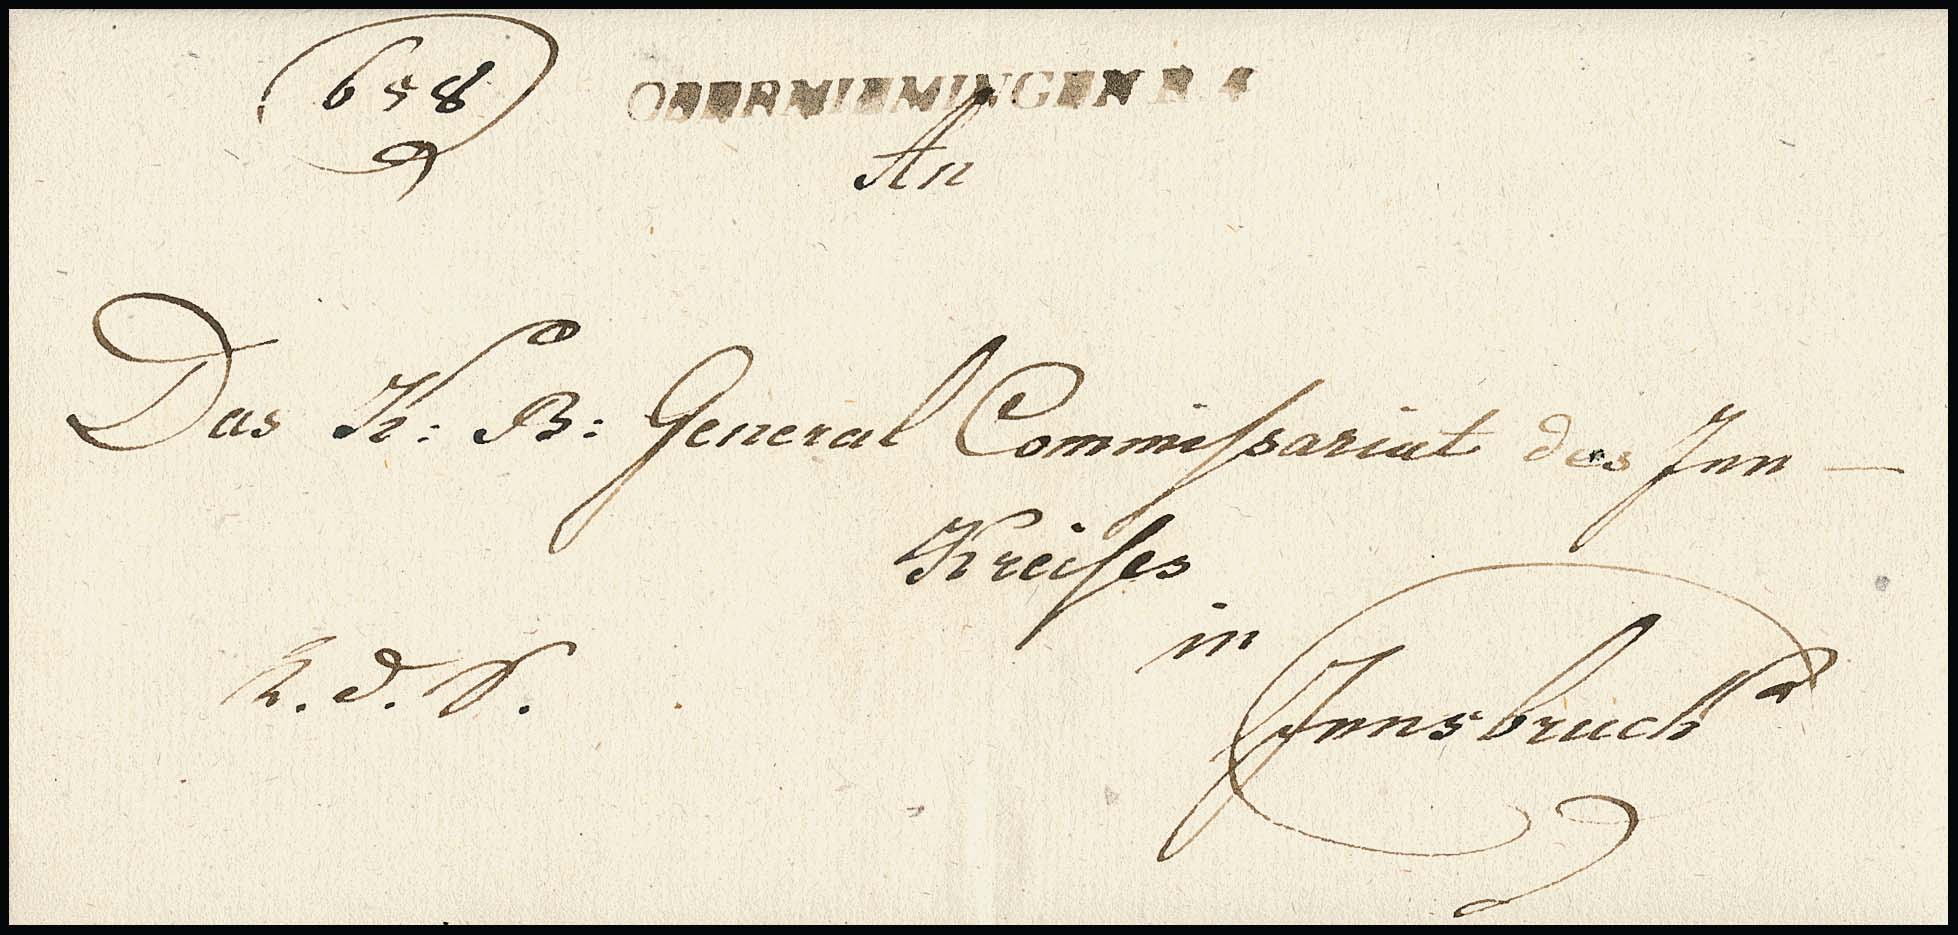 658
OBERMIEMINGEN R. 4
An
Das K: B: General Commiſsariat des Inn —
Kreiſes
in
Innsbruck
R. d. S.